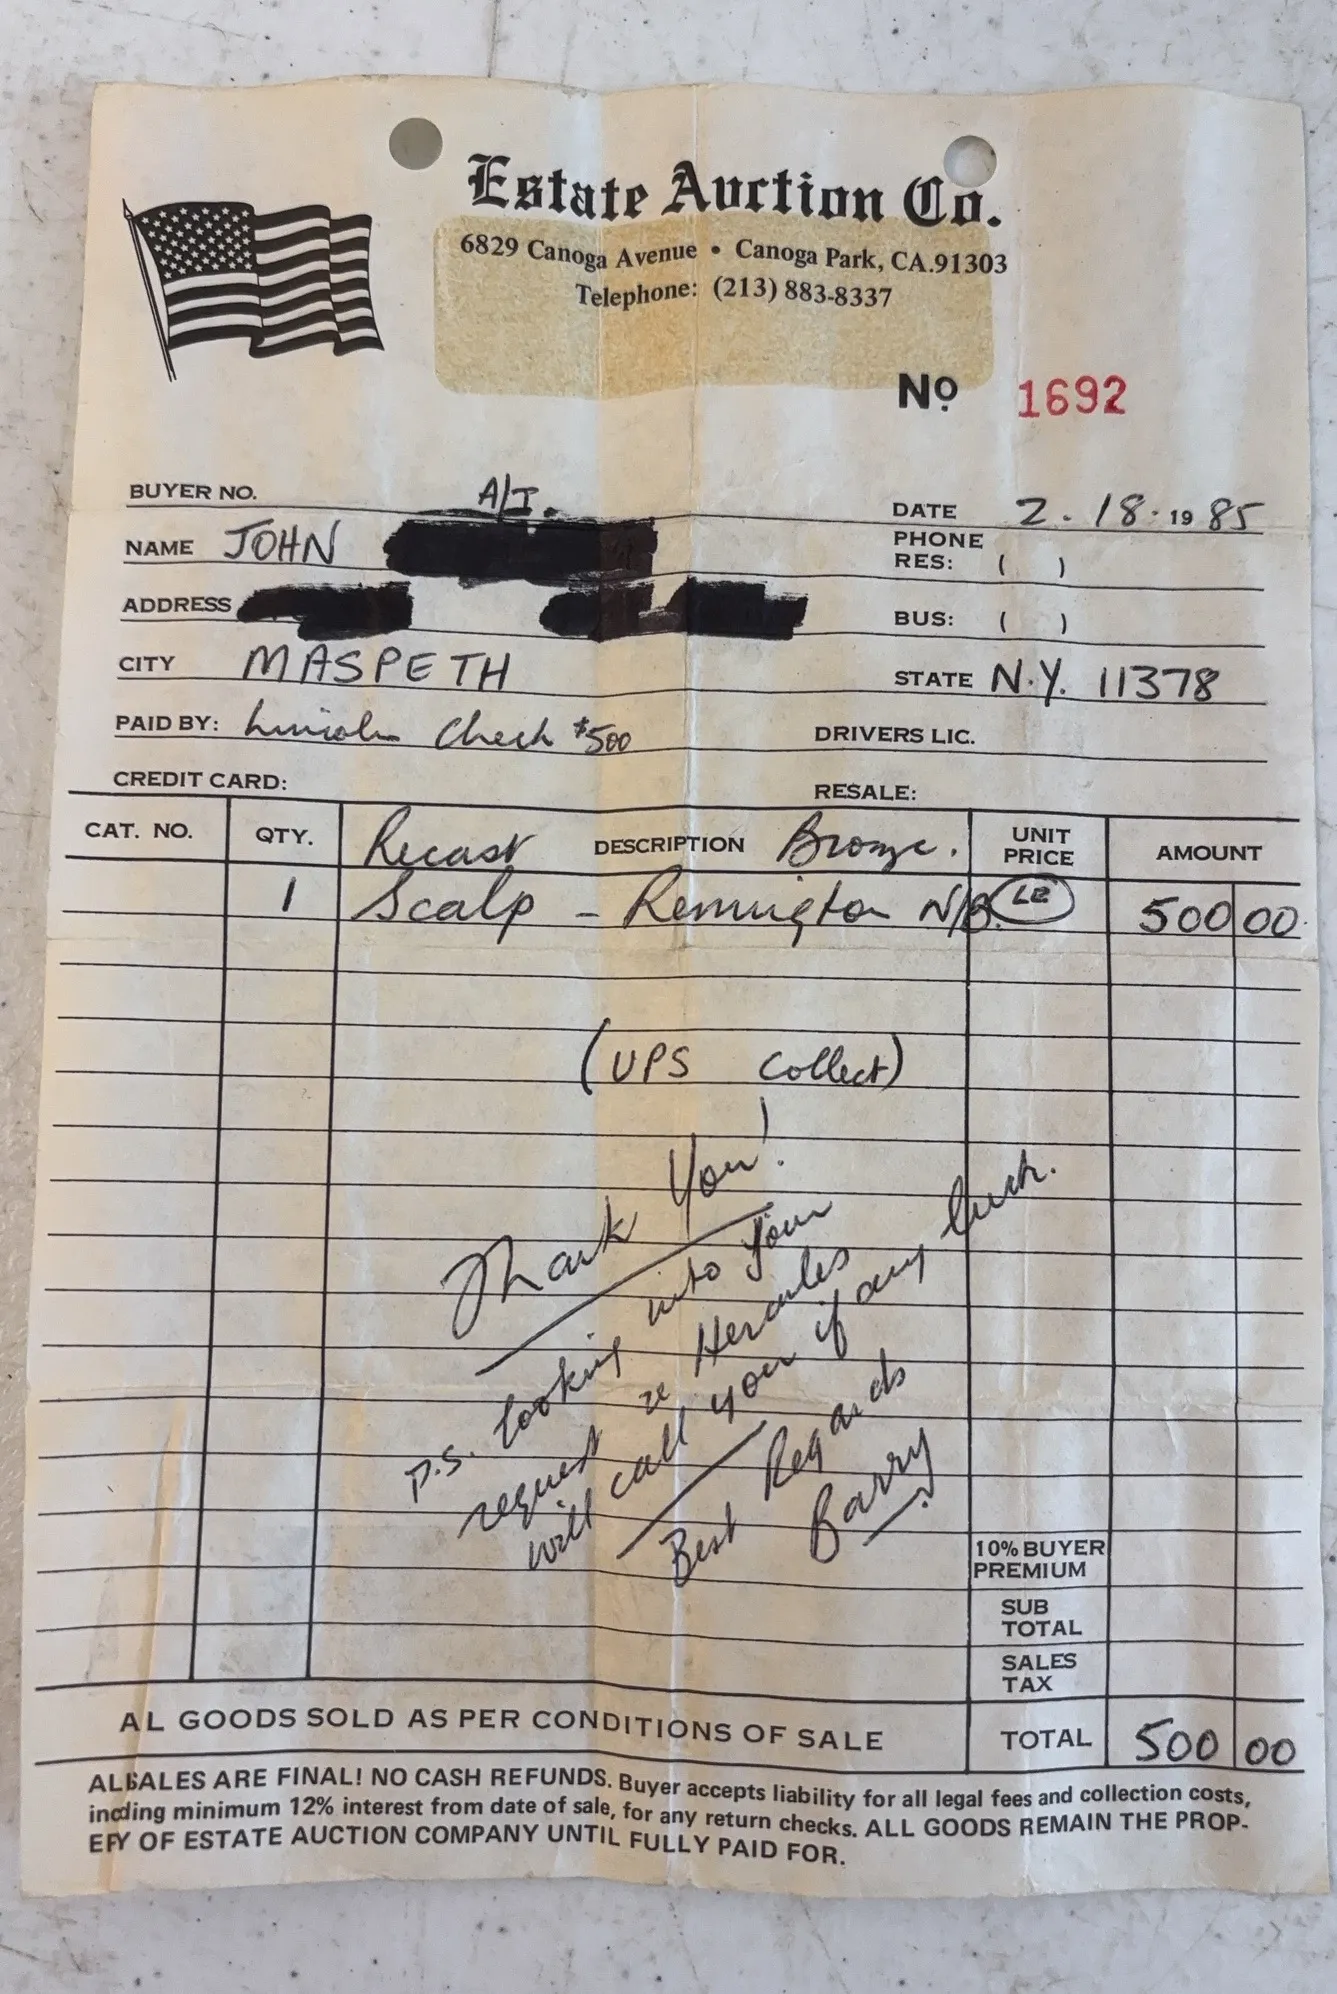 Estate Auction Co.
6829 Canoga Avenue • Canoga Park, CA.91303
Telephone: (213) 883-8337
No 1692
BUYER NO. A/I.
DATE 2.18.1985
NAME JOHN
PHONE
RES: ( )
ADDRESS
BUS: ( )
CITY MASPETH
STATE N.Y. 11378
PAID BY: Lincoln Check $500
DRIVERS LIC.
CREDIT CARD:
RESALE:
CAT. NO. QTY. Recast DESCRIPTION Bronze. UNIT PRICE AMOUNT
1 Scalp - Remington N/B. LE 500 00
(UPS Collect)
Thank You!
P.S. looking into your
request re Hercules
will call you if any luck.
Best Regards
Barry
10% BUYER
PREMIUM
SUB
TOTAL
SALES
TAX
AL GOODS SOLD AS PER CONDITIONS OF SALE
TOTAL 500 00
ALSALES ARE FINAL! NO CASH REFUNDS. Buyer accepts liability for all legal fees and collection costs,
incding minimum 12% interest from date of sale, for any return checks. ALL GOODS REMAIN THE PROP-
ERY OF ESTATE AUCTION COMPANY UNTIL FULLY PAID FOR.